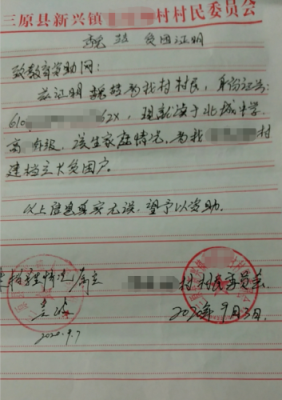 三原县新兴镇 村村民委员会
贫困证明
致教育资助网：
兹证明 为我村村民，身份证号：
610 62X，现就读于北城中学
高 班级，该生家庭情况，为我 村
建档立卡贫困户。
以上信息真实无误，望予以资助。
情况属实
村村民委员会
2020年9月3日
2020.9.7